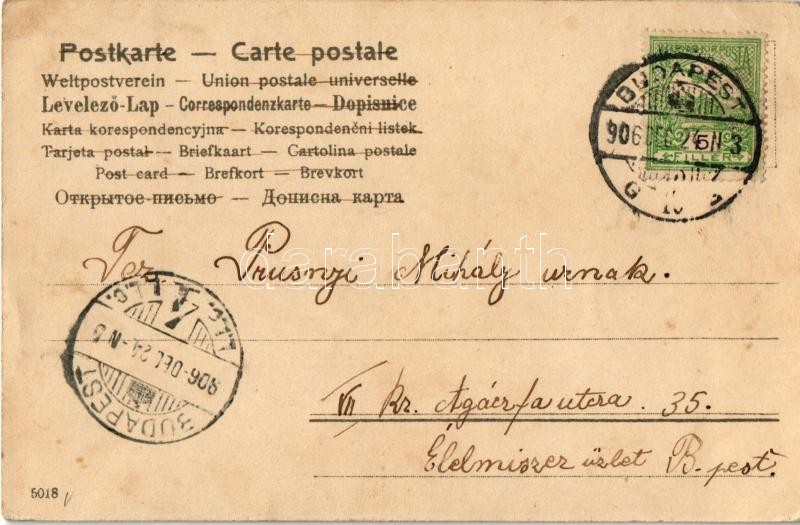 Postkarte — Carte postale
Weltpostverein — Union postale universelle
Levelező-Lap — Correspondenzkarte — Dopisnice
Karta korespondencyjna — Korespondenční listek
Tarjeta postal — Briefkaart — Cartolina postale
Post card — Brefkort — Brevkort
Открытое письмо — Дописна карта
MAGY. KIR. POSTA
5
FILLÉR
BUDAPEST
906 DEC 24 N 3
Tez. Prusnyi Mihály urnak.
darabanth
906-DEC 24.-N 6
BUDAPEST
VII Kr. Agáczfa utcza. 35.
Élelmiszer üzlet B.pest.
5018